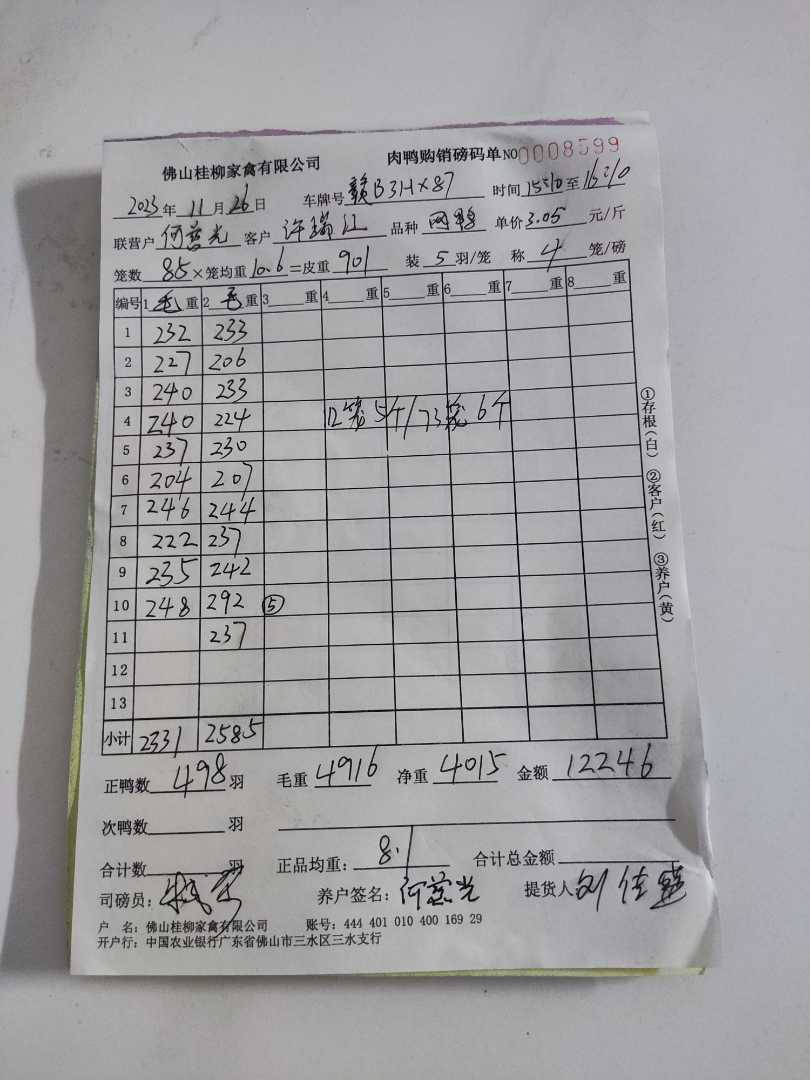 佛山桂柳家禽有限公司 肉鸭购销磅码单 NO 0008599
2023年 11月 26日 车牌号 赣B3HX87 时间 15:10 至 16:10
联营户 何慈光 客户 许瑞江 品种 网鸭 单价 3.05 元/斤
笼数 85 ×笼均重 10.6 =皮重 901 装 5 羽/笼 称 4 笼/磅
编号 1 毛 重 2 毛 重 3 重 4 重 5 重 6 重 7 重 8 重
1 232 233
2 227 206
3 240 233
4 240 224 12笼5个/73笼6个
5 237 230
6 204 207
7 246 244
8 222 237
9 235 242
10 248 292 ⑤
11 237
12
13
小计 2331 2585
①存根(白) ②客户(红) ③养户(黄)
正鸭数 498 羽 毛重 4916 净重 4015 金额 12246
次鸭数 羽
合计数 羽 正品均重: 8.1 合计总金额
司磅员: 养户签名: 何慈光 提货人
户 名: 佛山桂柳家禽有限公司 账号: 444 401 010 400 169 29
开户行: 中国农业银行广东省佛山市三水区三水支行